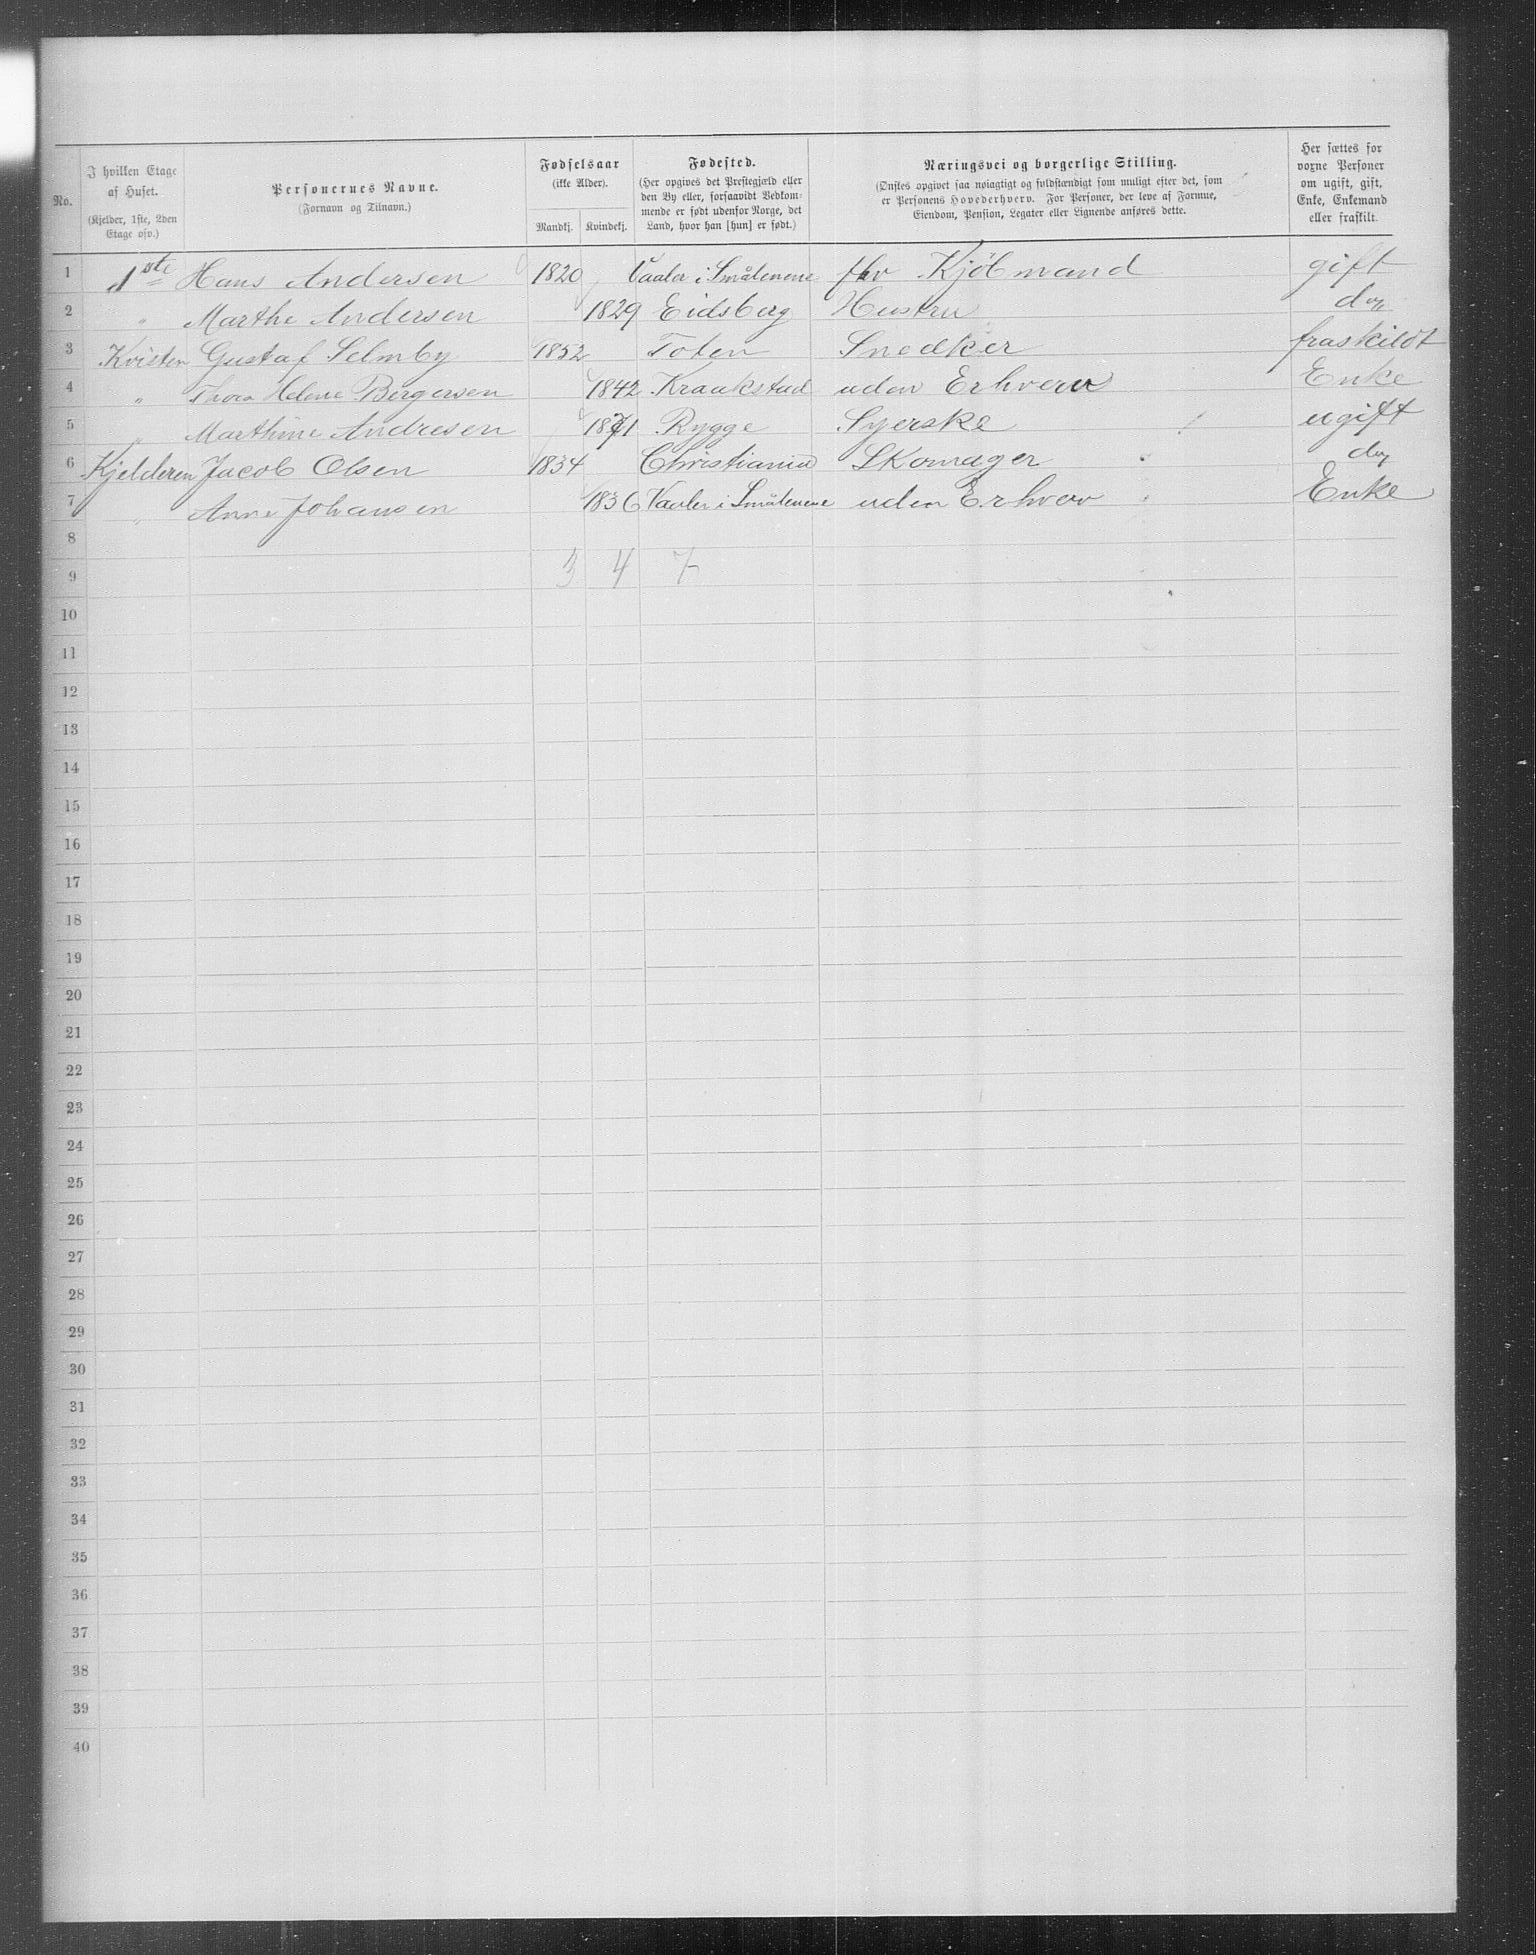 No. | I hvilken Etage af Huset. (Kjelder, 1ste, 2den Etage osv.) | Personernes Navne. (Fornavn og Tilnavn.) | Fødselsaar (ikke Alder). Mandkj. | Kvindekj. | Fødested. (Her opgives det Prestegjæld eller den By eller, forsaavidt Vedkommende er født udenfor Norge, det Land, hvor han [hun] er født.) | Næringsvei og borgerlige Stilling. (Ønskes opgivet saa nøiagtigt og fuldstændigt som muligt efter det, som er Personens Hovederhverv. For Personer, der leve af Formue, Eiendom, Pension, Legater eller Lignende anføres dette. | Her sættes for voxne Personer om ugift, gift, Enke, Enkemand eller fraskilt.
1 | 1ste | Hans Andersen | 1820 | | Vaaler i Smålenene | fhv Kjöbmand | gift
2 | " | Marthe Andersen | | 1829 | Eidsberg | Hustru | do
3 | Kvisten | Gustaf Selmby | 1852 | | Toten | Snedker | fraskildt
4 | " | Thora Helene Bergersen | | 1842 | Kraakstad | uden Erhverv | Enke
5 | " | Marthine Andresen | | 1871 | Rygge | Syerske | ugift
6 | Kjelderen | Jacob Olsen | 1834 | | Christiania | Skomager | do
7 | " | Anne Johansen | | 1836 | Vaaler i Smålenene | uden Erhverv | Enke
8
9 | | | 3 | 4 | 7
10
11
12
13
14
15
16
17
18
19
20
21
22
23
24
25
26
27
28
29
30
31
32
33
34
35
36
37
38
39
40